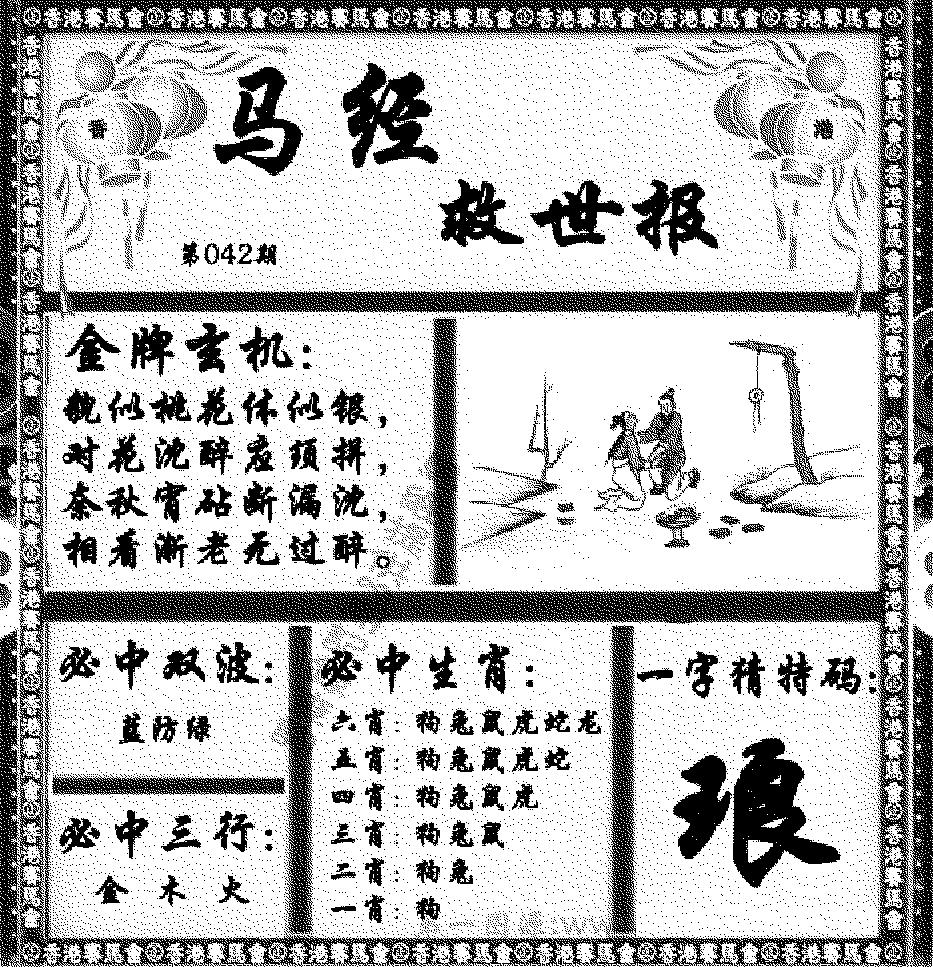 香港賽馬會 香港賽馬會 香港賽馬會 香港賽馬會 香港賽馬會 香港賽馬會
香
港
马经
救世报
第042期
金牌玄机：
貌似桃花体似银，
对花沈醉应须拼，
秦秋宵砧断漏沈，
相看渐老无过醉。
必中双波：
蓝防绿
必中三行：
金 木 火
必中生肖：
六肖：狗兔鼠虎蛇龙
五肖：狗兔鼠虎蛇
四肖：狗兔鼠虎
三肖：狗兔鼠
二肖：狗兔
一肖：狗
一字猜特码：
琅
香港賽馬會 香港賽馬會 香港賽馬會 香港賽馬會 香港賽馬會 香港賽馬會